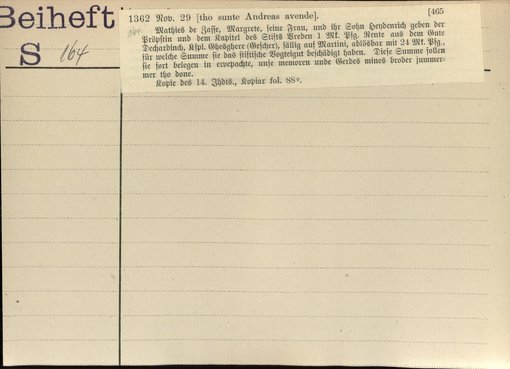 Beiheft
S 164
1362 Nov. 29 [tho sunte Andreas avende]. [465
Mathies de Zasse, Margrete, seine Frau, und ihr Sohn Heydenrich geben der
Pröpstin und dem Kapitel des Stifts Vreden 1 Mk. Pfg. Rente aus dem Gute
Dechardinch, Kspl. Ghesghere (Gescher), fällig auf Martini, ablösbar mit 24 Mk. Pfg.,
für welche Summe sie das stiftische Vogteigut beschädigt haben. Diese Summe sollen
sie fort belegen in ervepachte, unse memoren unde Gerdes mines broder jummer-
mer tho done.
Kopie des 14. Jhdts., Kopiar fol. 88v.